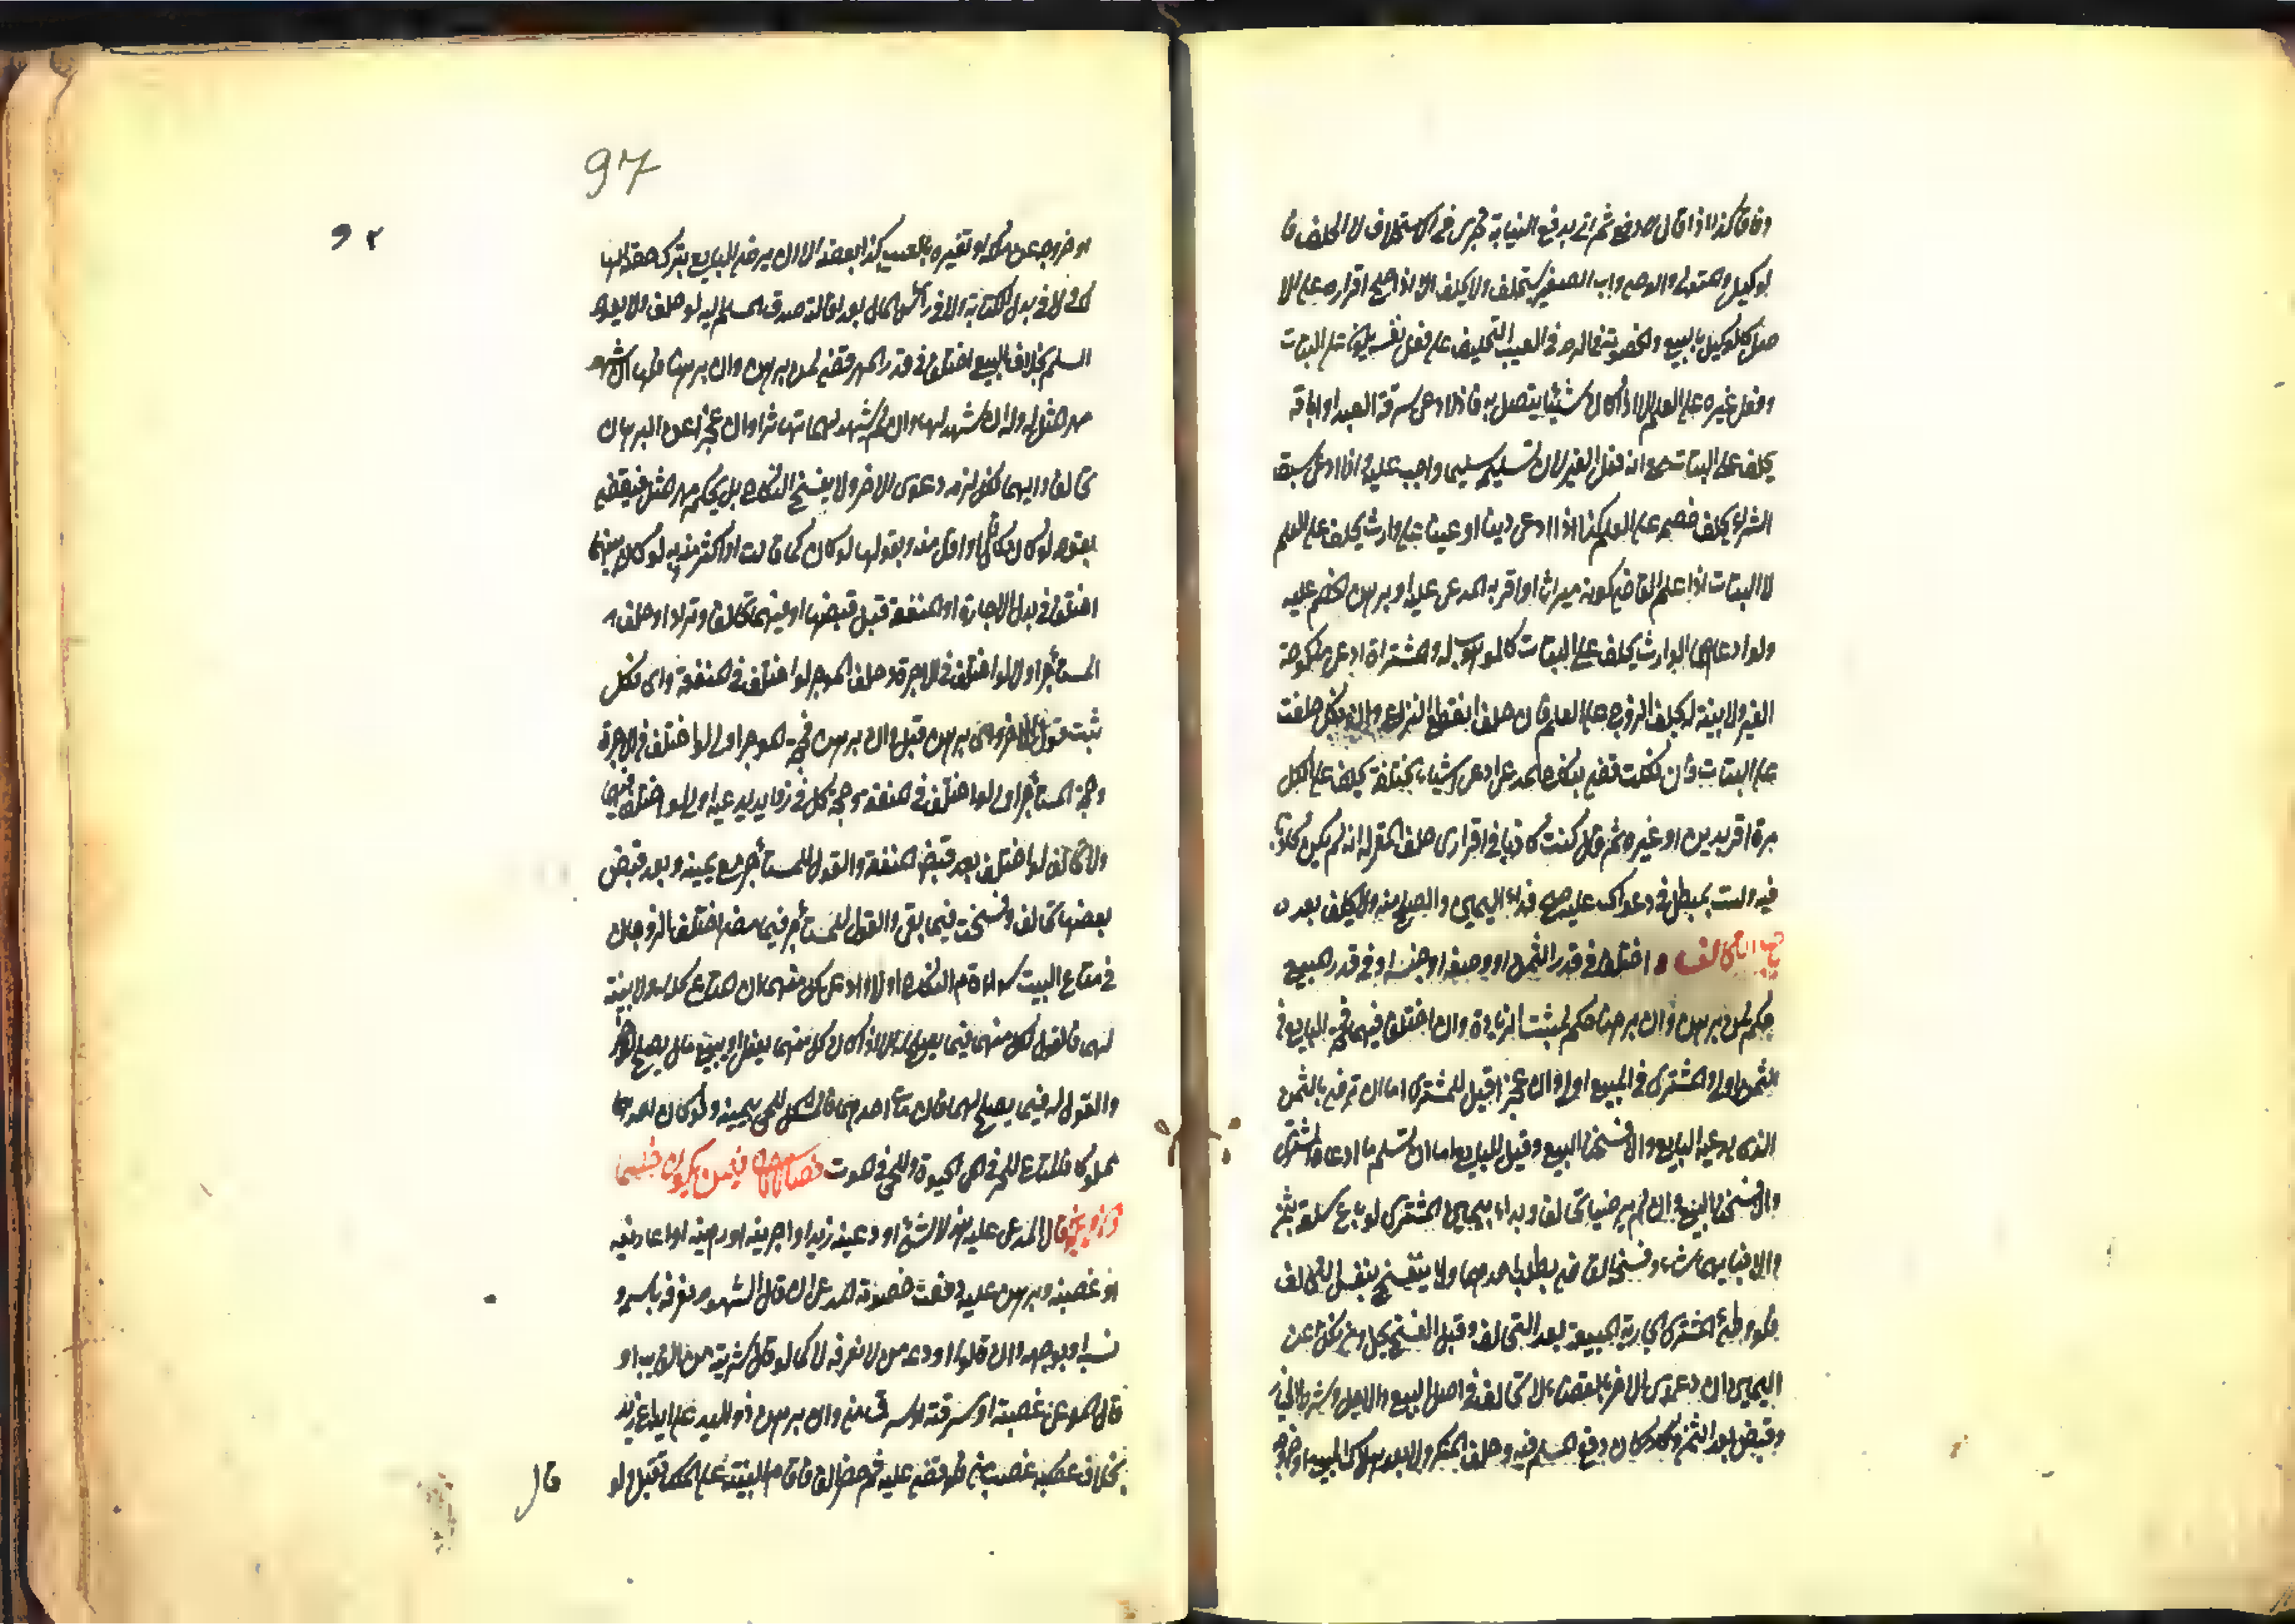 وفاقا كذا اذا قال لا دفع ثم اتى بدفع النيابة تجري في الاستحلاف لا الحلف فا
لوكيل والمتولي والوصي واب الصغير يستحلف ولا يحلف الا اذا صح اقراره على الا
صيل كالوكيل بالبيع والخصومة في الرد في العيب التحليف على فعل نفسه يكون على البتات
وفعل غيره على العلم الا اذا كان شيئا يتصل به فاذا ادعى سرقة العبد او اباقه
يحلف على البتات مع انه فعل الغير لان تسليمه سليما واجب عليه فاذا ادعى سبق
الشراء يحلف خصمه على العلم كذا اذا ادعى دينا او عينا على وارث يحلف على العلم
لا البتات اذا علم القاضي كونه ميراثا او اقر به المدعى عليه او برهن الخصم عليه
ولو ادعاهما الوارث يحلف على البتات كالموهوب له والمشتراة ادعى منكوحة
الغير ولا بينة له يحلف الزوج على العلم فان حلف انقطع النزاع وان نكل حلفت
على البتات فان نكلت قضي بنكاح المدعي ادعى اشياء مختلفة يحلف على الكل
مرة اقر بدين او غيره ثم قال كنت كاذبا في اقراري حلف المقر له انه لم يكن كاذبا
فيه ولست بمبطل في دعواك عليه صح فداء اليمين والصلح منه ولا يحلف بعده
باب التحالف اختلفا في قدر الثمن او وصفه او جنسه او في قدر المبيع
حكم لمن برهن وان برهنا حكم لمثبت الزيادة وان اختلفا فيهما فحجة البايع في
الثمن اولى والمشتري في المبيع اولى وان عجزا قيل للمشتري اما ان ترضى بالثمن
الذي يدعيه البايع والا فسخنا البيع وقيل للبايع اما ان تسلم ما ادعاه المشتري
والا فسخنا البيع وان لم يرضيا تحالفا وبداء بيمين المشتري لو باع سلعة بثمن
والا فبايهما شاء وفسخ القاضي بطلب احدهما ولا ينفسخ بنفس التحالف
فلو وطئ المشتري الجارية المبيعة بعد التحالف وقبل الفسخ يحل ومن نكل عن
اليمين لزمه دعوى الاخر بالقضاء لا تحالف في اصل البيع والاجل وشرط الخيار
وقبض بعض الثمن ومكان دفع المسلم فيه وحلف المنكر ولا بعد هلاك المبيع او خروجه
97
92
او خروجه عن ملكه او تغيره بالعيب كذا بعضه الا ان يرضى البايع بترك حصة الها
لك ولا في بدل الكتابة ولا في راس المال بعد اقالة صدق المسلم اليه لو حلف ولا يعود
السلم بخلاف البيع اختلفا في قدر المهر قضي لمن برهن وان برهنا فلها ان شهد
مهر المثل له وله ان شهد لها وان لم يشهد لهما تهاترا وان عجزا عن البرهان
تحالفا وايهما نكل لزمه دعوى الاخر ولا يفسخ النكاح بل يحكم مهر المثل فيقضى
بقوله لو كان كما قال او اقل منه وبقولها لو كان كما قالت او اكثر منه وبه لو كان بينهما
اختلفا في بدل الاجارة او المنفعة قبل قبضها او فيهما تحالفا وترادا وحلف
المستأجر اولا لو اختلفا في الاجرة وحلف الموجر لو اختلفا في المنفعة واي نكل
ثبت قول الاخر واي برهن قبل وان برهن فحجة الموجر اولى لو اختلفا في الاجرة
وحجة المستأجر اولى لو اختلفا في المنفعة وحجة كل في زايد يدعيه اولى لو اختلفا فيهما
ولا تحالف لو اختلفا بعد قبض المنفعة والقول للمستأجر مع يمينه وبعد قبض
بعضها تحالفا وفسخت فيما بقي والقول للمستأجر فيما مضى اختلف الزوجان
في متاع البيت سواء قام النكاح اولا وادعى كل منهما ان المتاع كله له ولا بينة
لهما فالقول لكل منهما فيما يصلح له الا اذا كان كل منهما يفعل او يبيع ما يصلح للاخر
والقول له فيما يصلح لهما فان مات احدهما فالمشكل للحي بيمينه ولو كان احدهما
مملوكا فالمتاع للحر في الحيوة وللحي في الموت فصل فيمن يكون خصما
قال المدعى عليه هذا الشئ اودعنيه زيد او اجرنيه او رهنيه او اعارنيه
او غصبته وبرهن عليه دفعت خصومة المدعي ان قال الشهود نعرفه باسمه و
نسبه او بوجهه وان قالوا اودعه من لا نعرفه لا كما لو قال شريته من الغايب او
قال المدعي غصبته او سرقته او سرق مني وان برهن ذو اليد على ايداع زيد
بخلاف غصبه غصب مني فلو قضى عليه ثم حضر الغايب فاقام البينة على الملك تقبل ولو
قال